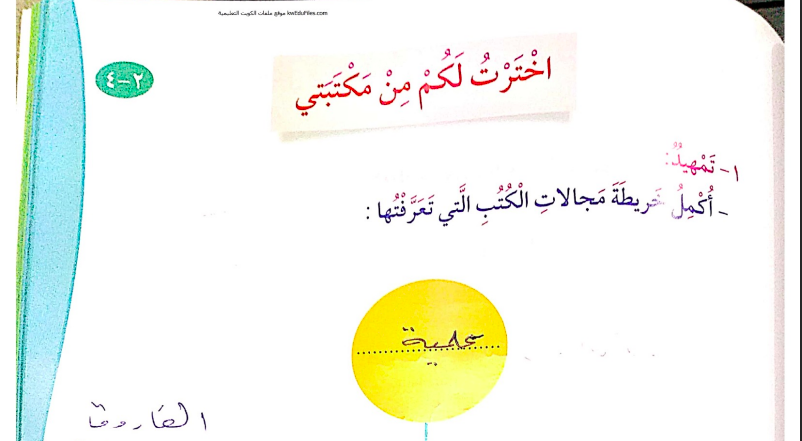 موقع ملفات الكويت التعليمية kwEduFiles.com
٢-٤
اخْتَرْتُ لَكُمْ مِنْ مَكْتَبَتي
١- تَمْهيدٌ:
- أُكْمِلُ خَريطَةَ مَجالاتِ الْكُتُبِ الَّتي تَعَرَّفْتُها :